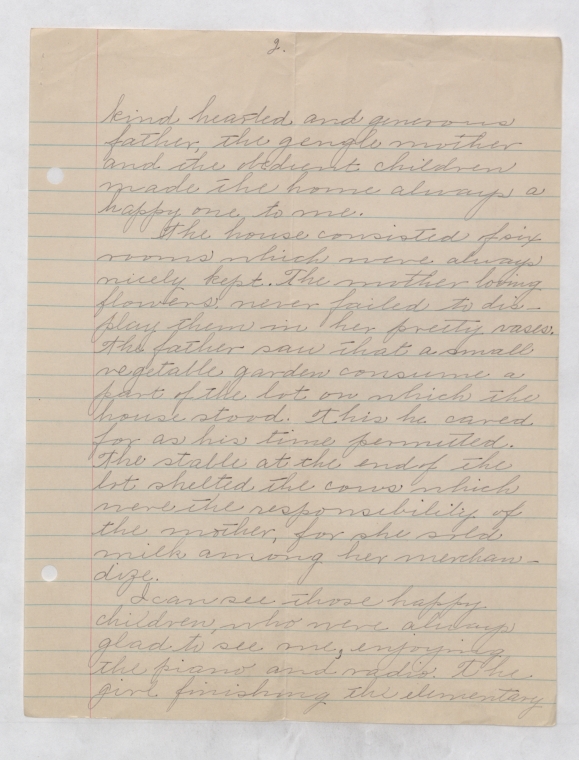 2.
kind hearted and generous
father, the gengle mother
and the obedient children
made the home always a
happy one to me.
The house consisted of six
rooms which were always
nicely kept. The mother loving
flowers, never failed to dis-
play them in her pretty vases.
The father saw that a small
vegetable garden consume a
part of the lot on which the
house stood. This he cared
for as his time permitted.
The stalle at the end of the
lot shelted the cows which
were the responsibility of
the mother, for she sold
milk among her merchan-
dize.
I can see those happy
children, who were always
glad to see me, enjoying
the piano and radio. The
give finishing the elementary